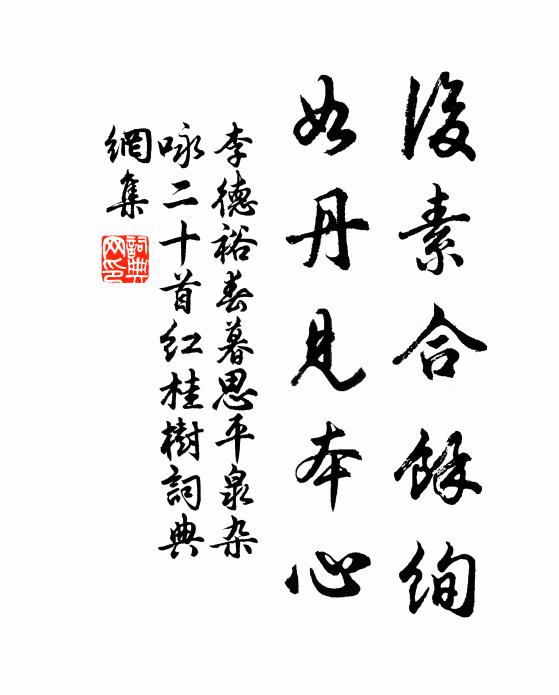 後素合餘絢
如丹見本心
李德裕春暮思平泉杂
咏二十首红桂樹詞典
網集
詞典網印